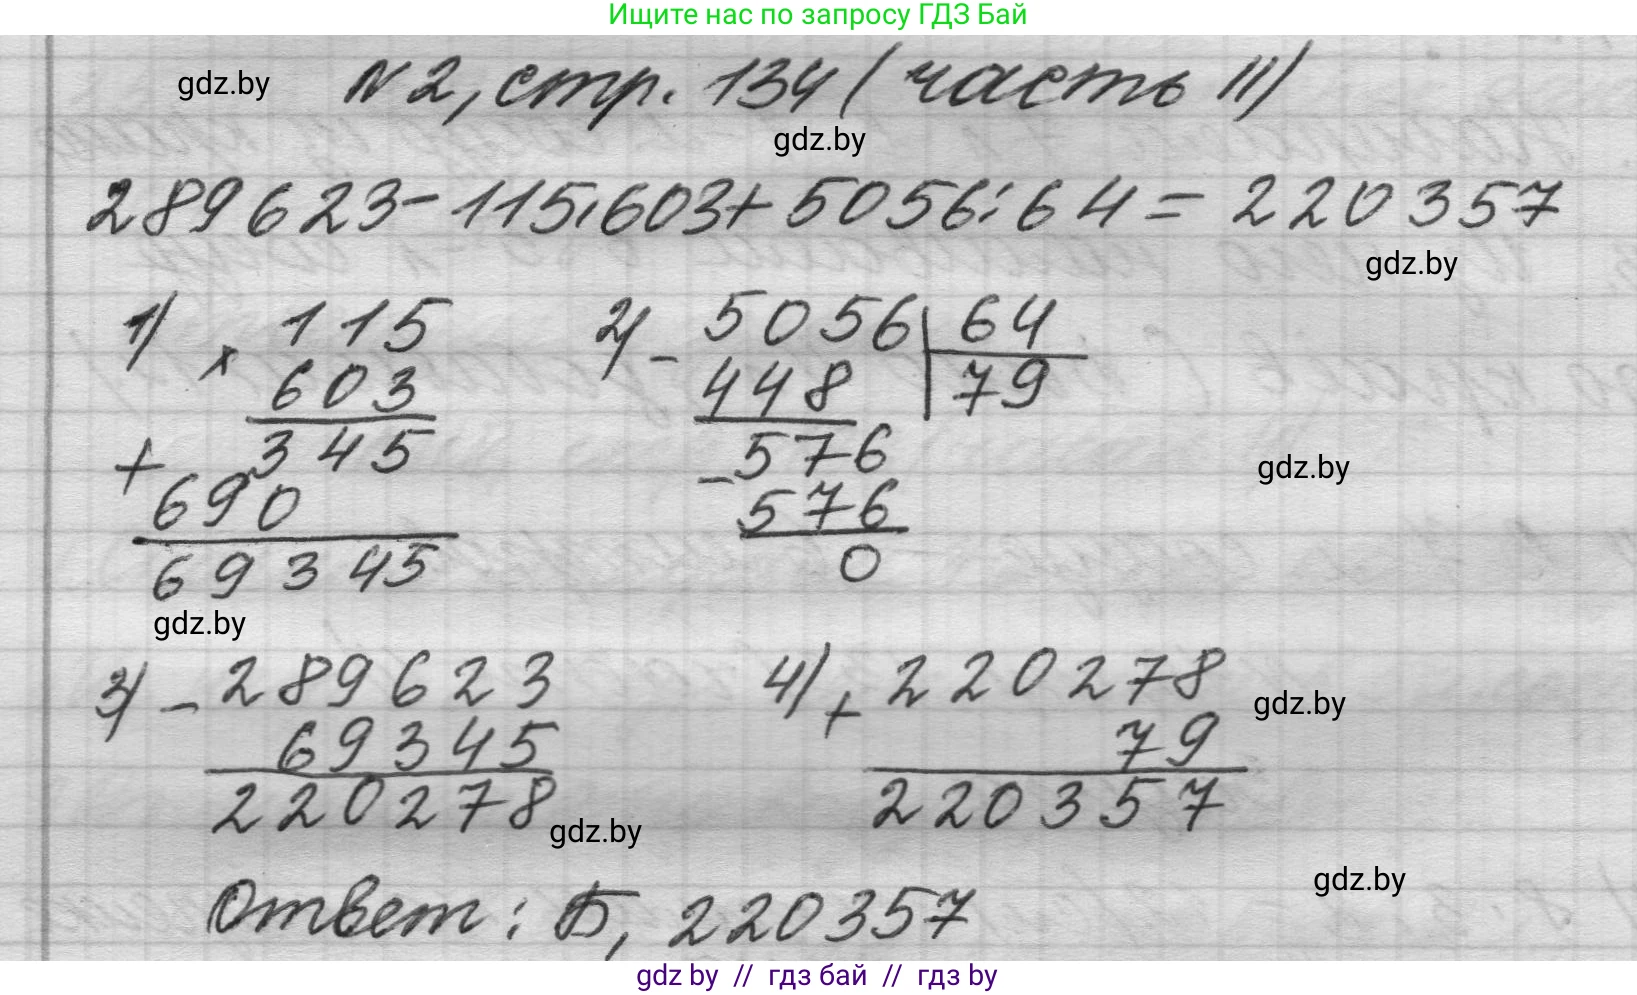 Ищите нас по запросу ГДЗ Бай
gdz.by
№2, стр. 134 (часть II)
gdz.by
289623-115·603+5056:64=220357
gdz.by
1) × 115
603
+ 345
690
69345
2) - 5056 64
448 79
-576
576
0
gdz.by
gdz.by
3) - 289623
69345
220278
gdz.by
4) + 220278
79
220357
gdz.by
gdz.by
Ответ: Б, 220357
gdz by // гдз бай // гдз by